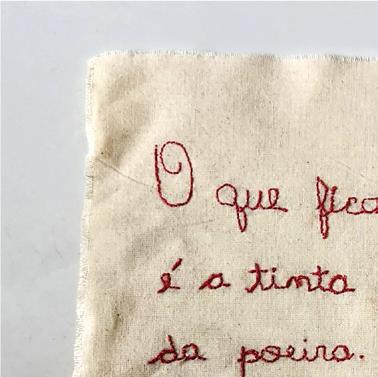 O que fica
é a tinta
da poeira.